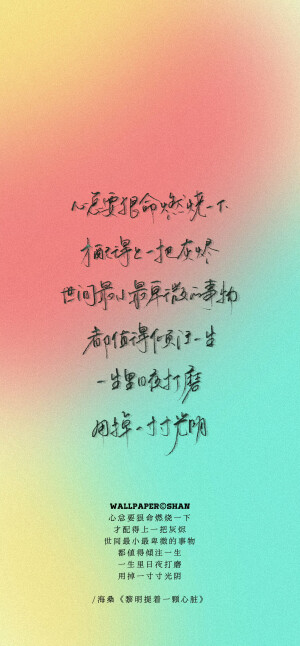 心总要狠命燃烧一下
才配得上一把灰烬
世间最小最卑微的事物
都值得倾注一生
一生里日夜打磨
用掉一寸寸光阴
WALLPAPER©SHAN
心总要狠命燃烧一下
才配得上一把灰烬
世间最小最卑微的事物
都值得倾注一生
一生里日夜打磨
用掉一寸寸光阴
/海桑《黎明提着一颗心脏》